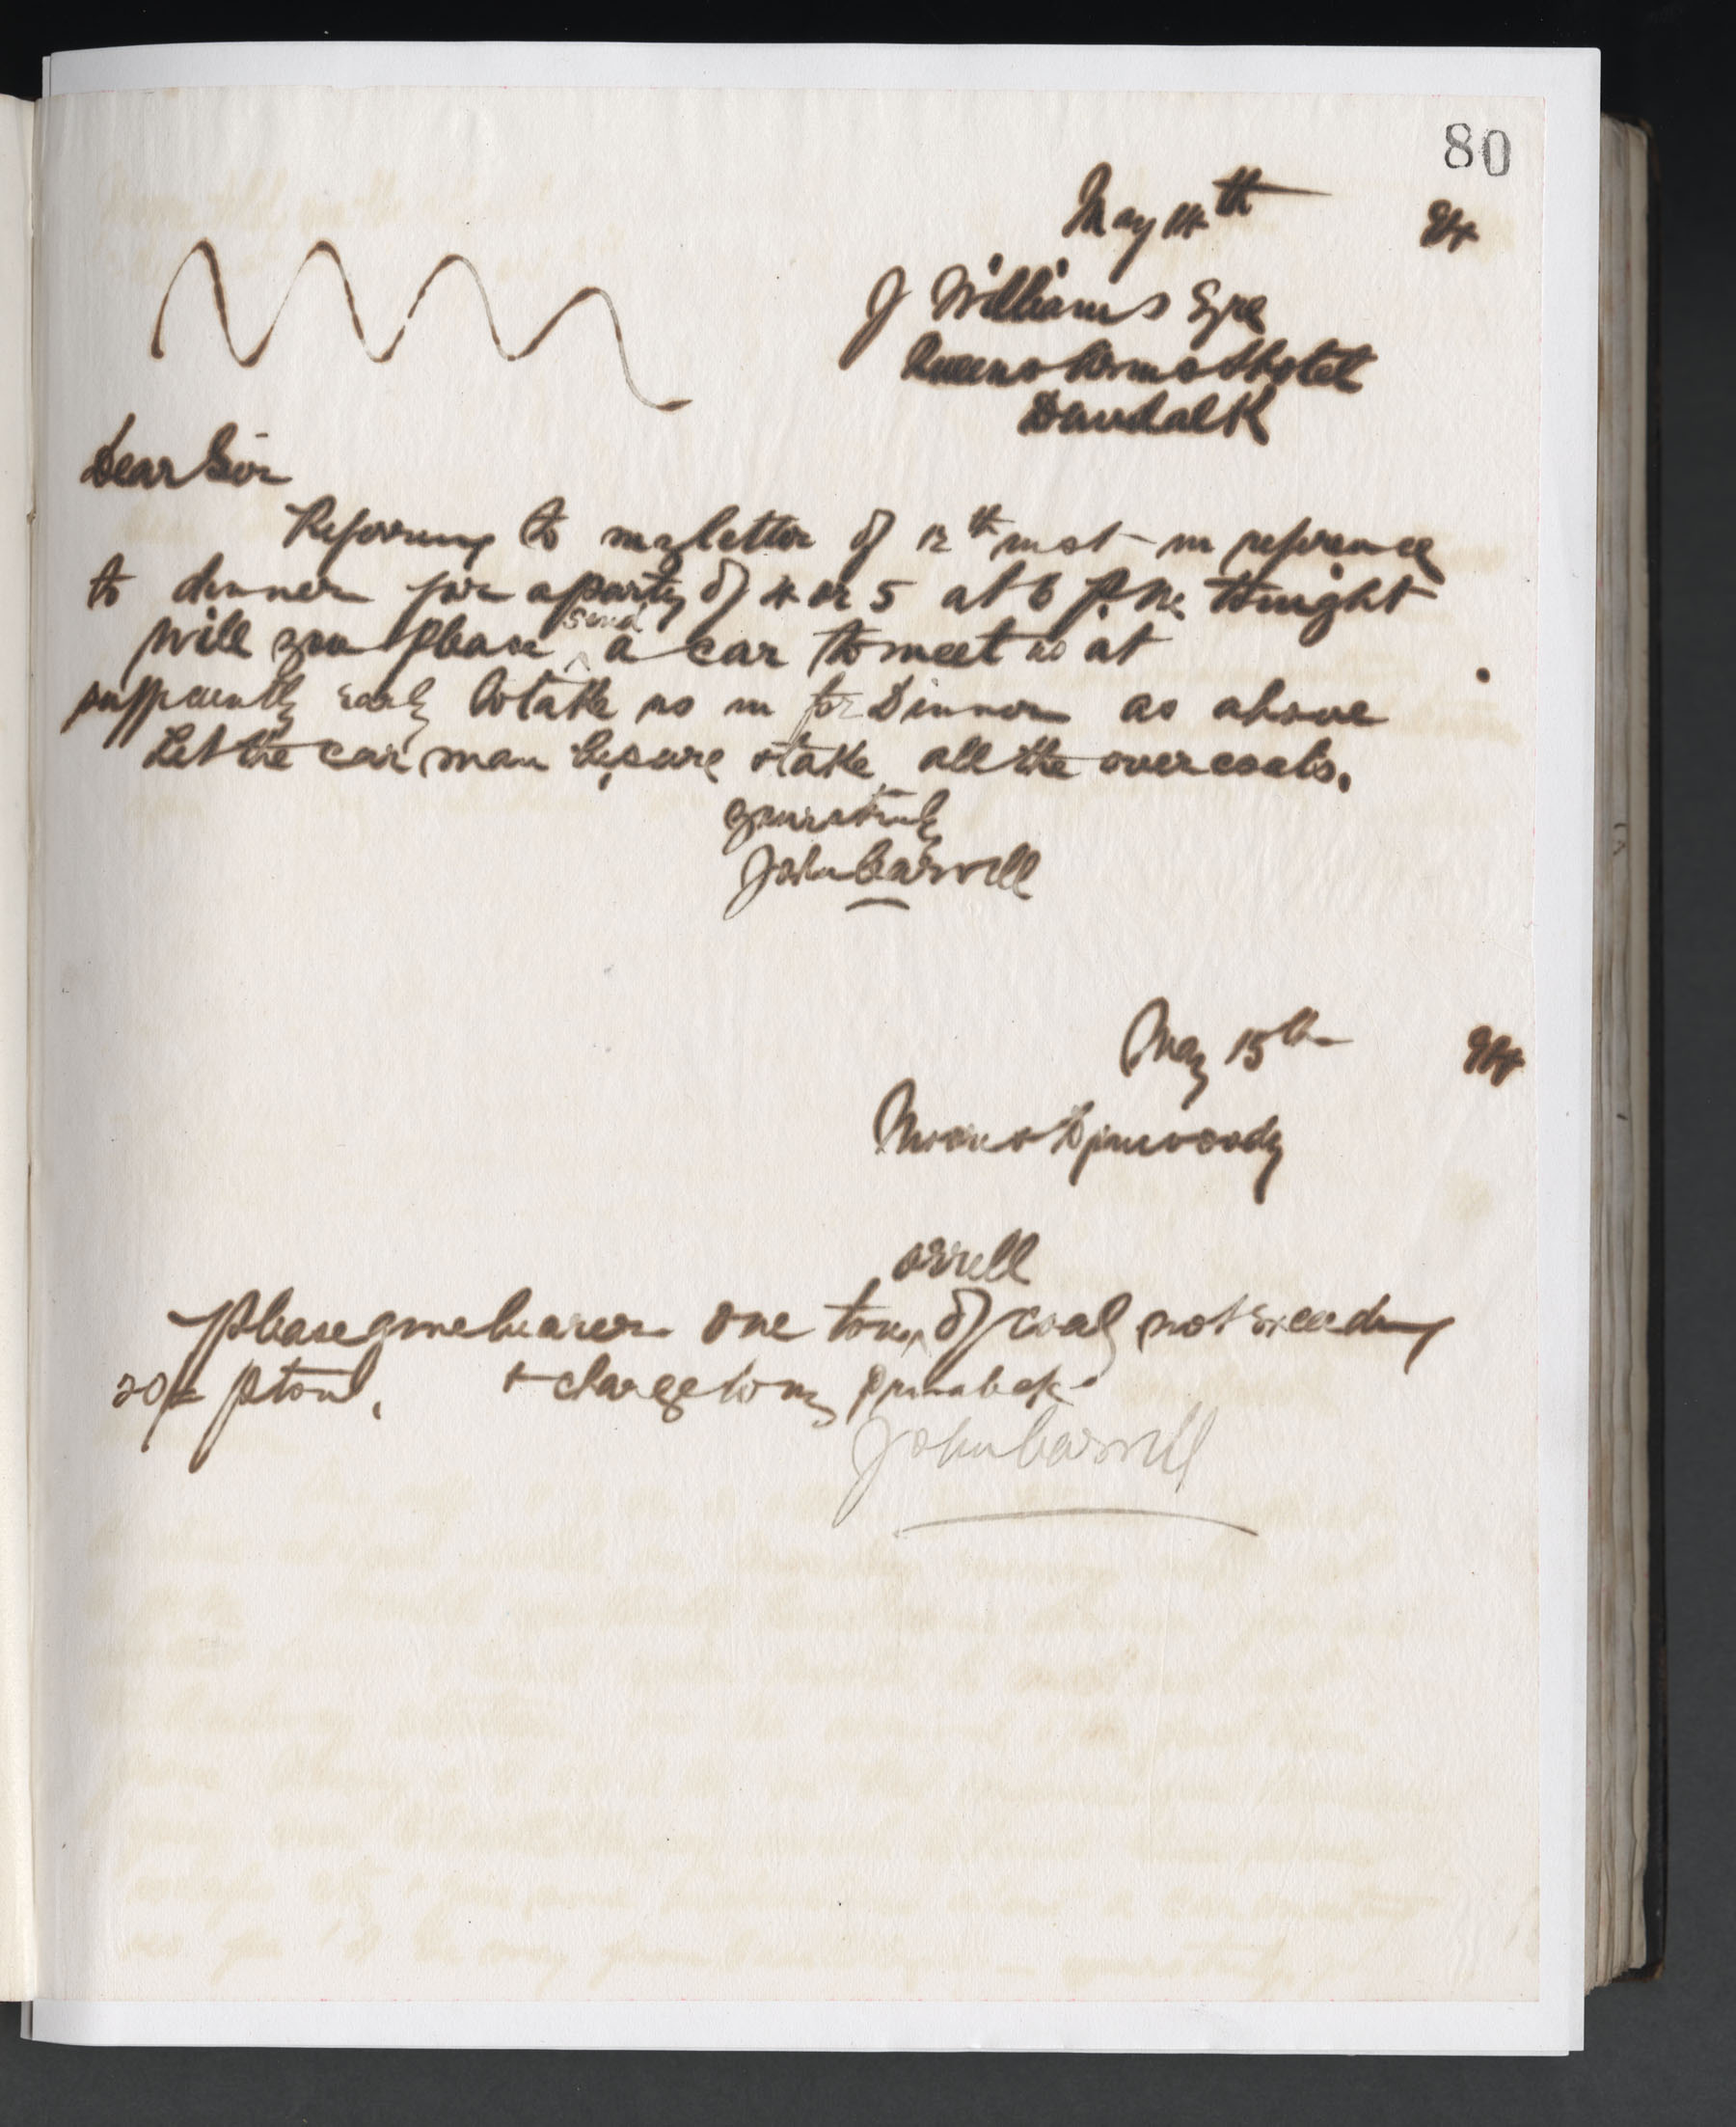 80
May 14th 94
J Williams Esqre
Queens Arms Hotel
Dundalk
Dear Sir
Referring to my letter of 12th inst in reference
to dinner for a party of 4 or 5 at 6 P.M. tonight
will you please send a car to meet us at
sufficiently early to take us in for Dinner as above
Let the car man be sure & take all the overcoats.
yours truly
John Carroll
May 15th 94
orrell
Please give bearer one ton of coal not exceeding
20/- p ton. & charge to my
John Carroll